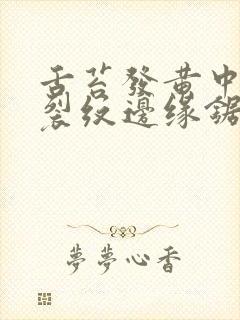 舌苔發黃中
裂紋邊緣鋸
夢夢心香